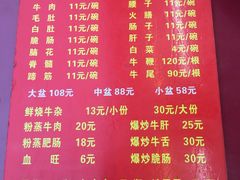 牛肉 11元/碗 腰子 11元/碗
毛肚 11元/碗 火腿 11元/碗
白肚 11元/碗 肠子 11元/碗
脆肠 11元/碗 肝子 11元/碗
脑花 11元/碗 白菜 4元/碗
脊髓 11元/碗 牛鞭 120元/根
蹄筋 11元/碗 牛尾 90元/根
大盆108元 中盆88元 小盆58元
鲜烧牛杂 13元/小份 30元/大份
粉蒸牛肉 20元 爆炒牛肝 25元
粉蒸肥肠 18元 爆炒牛舌 30元
血旺 6元 爆炒脆肠 30元